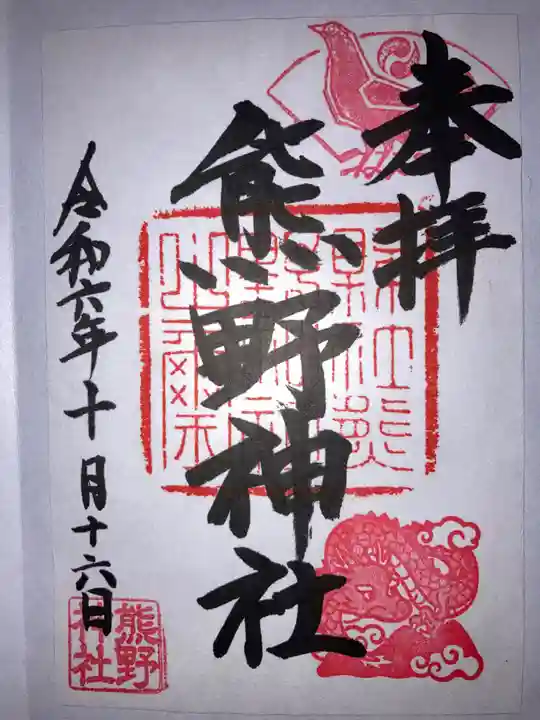 奉拝
熊野神社
令和六年十月十六日
熊野
神社